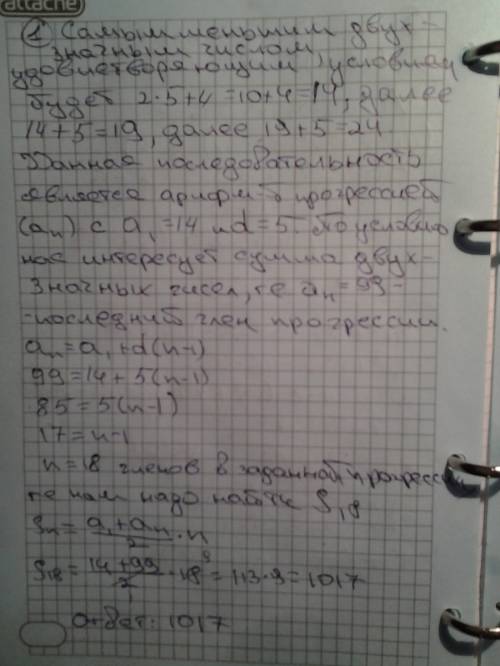 attache
① Самым меньшим двух-
значным числом,
удовлетворяющим условием
будет 2·5+4=10+4=14, далее
14+5=19, далее 19+5=24
Данная последовательность
является арифм-й прогрессией
(aₙ) с a₁=14 и d=5. По условию
нас интересует сумма двух-
значных чисел, т.е aₙ=99-
-последний член прогрессии.
aₙ=a₁+d(n-1)
99=14+5(n-1)
85=5(n-1)
17=n-1
n=18 членов в заданной прогрессии
т.е нам надо найти S₁₈
Sₙ = (a₁+aₙ)/2 · n
S₁₈ = (14+99)/2 · 18⁹ = 113·9=1017
Ответ: 1017